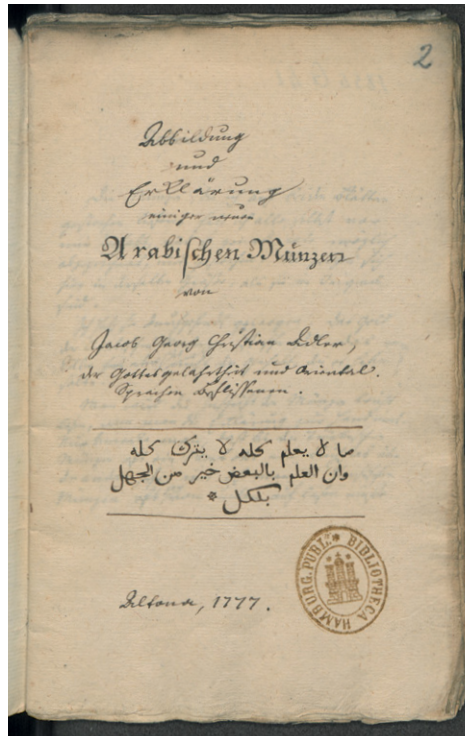 2
Abbildung
und
Erklärung
einiger neuen
Arabischen Münzen
von
Jacob Georg Christian Adler,
der Gottesgelahrtheit und Oriental.
Sprachen Beflissenen.
ما لا يعلم كله لا يترك كله
وان العلم بالبعض خير من الجهل
بلكل *
Altona, 1777.
HAMBURG. PUBL. BIBLIOTHECA